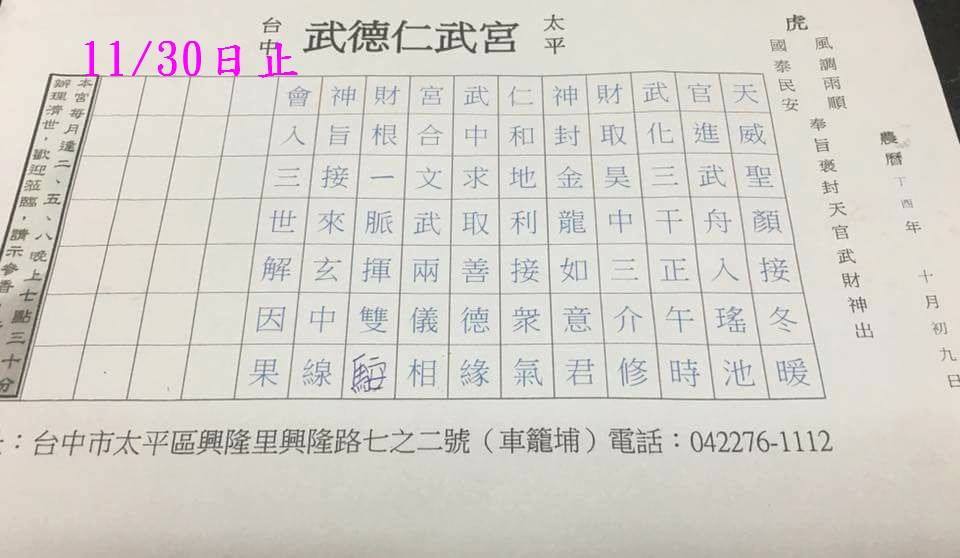 11/30日止
台中 武德仁武宮 太平
虎
風調雨順
國泰民安
奉旨褒封天官武財神出
農曆丁酉年 十月初九日
天威聖顏接冬暖
官進武舟入瑤池
武化三干正午時
財取昊中三介修
神封金龍如意君
仁和地利接眾氣
武中求取善德緣
宮合文武兩儀相
財根一脈揮雙
神旨接來玄中線
會入三世解因果
本宮每月逢二、五、八晚上七點三十分
辦理濟世，歡迎蒞臨，請示參香，
：台中市太平區興隆里興隆路七之二號（車籠埔）電話：042276-1112